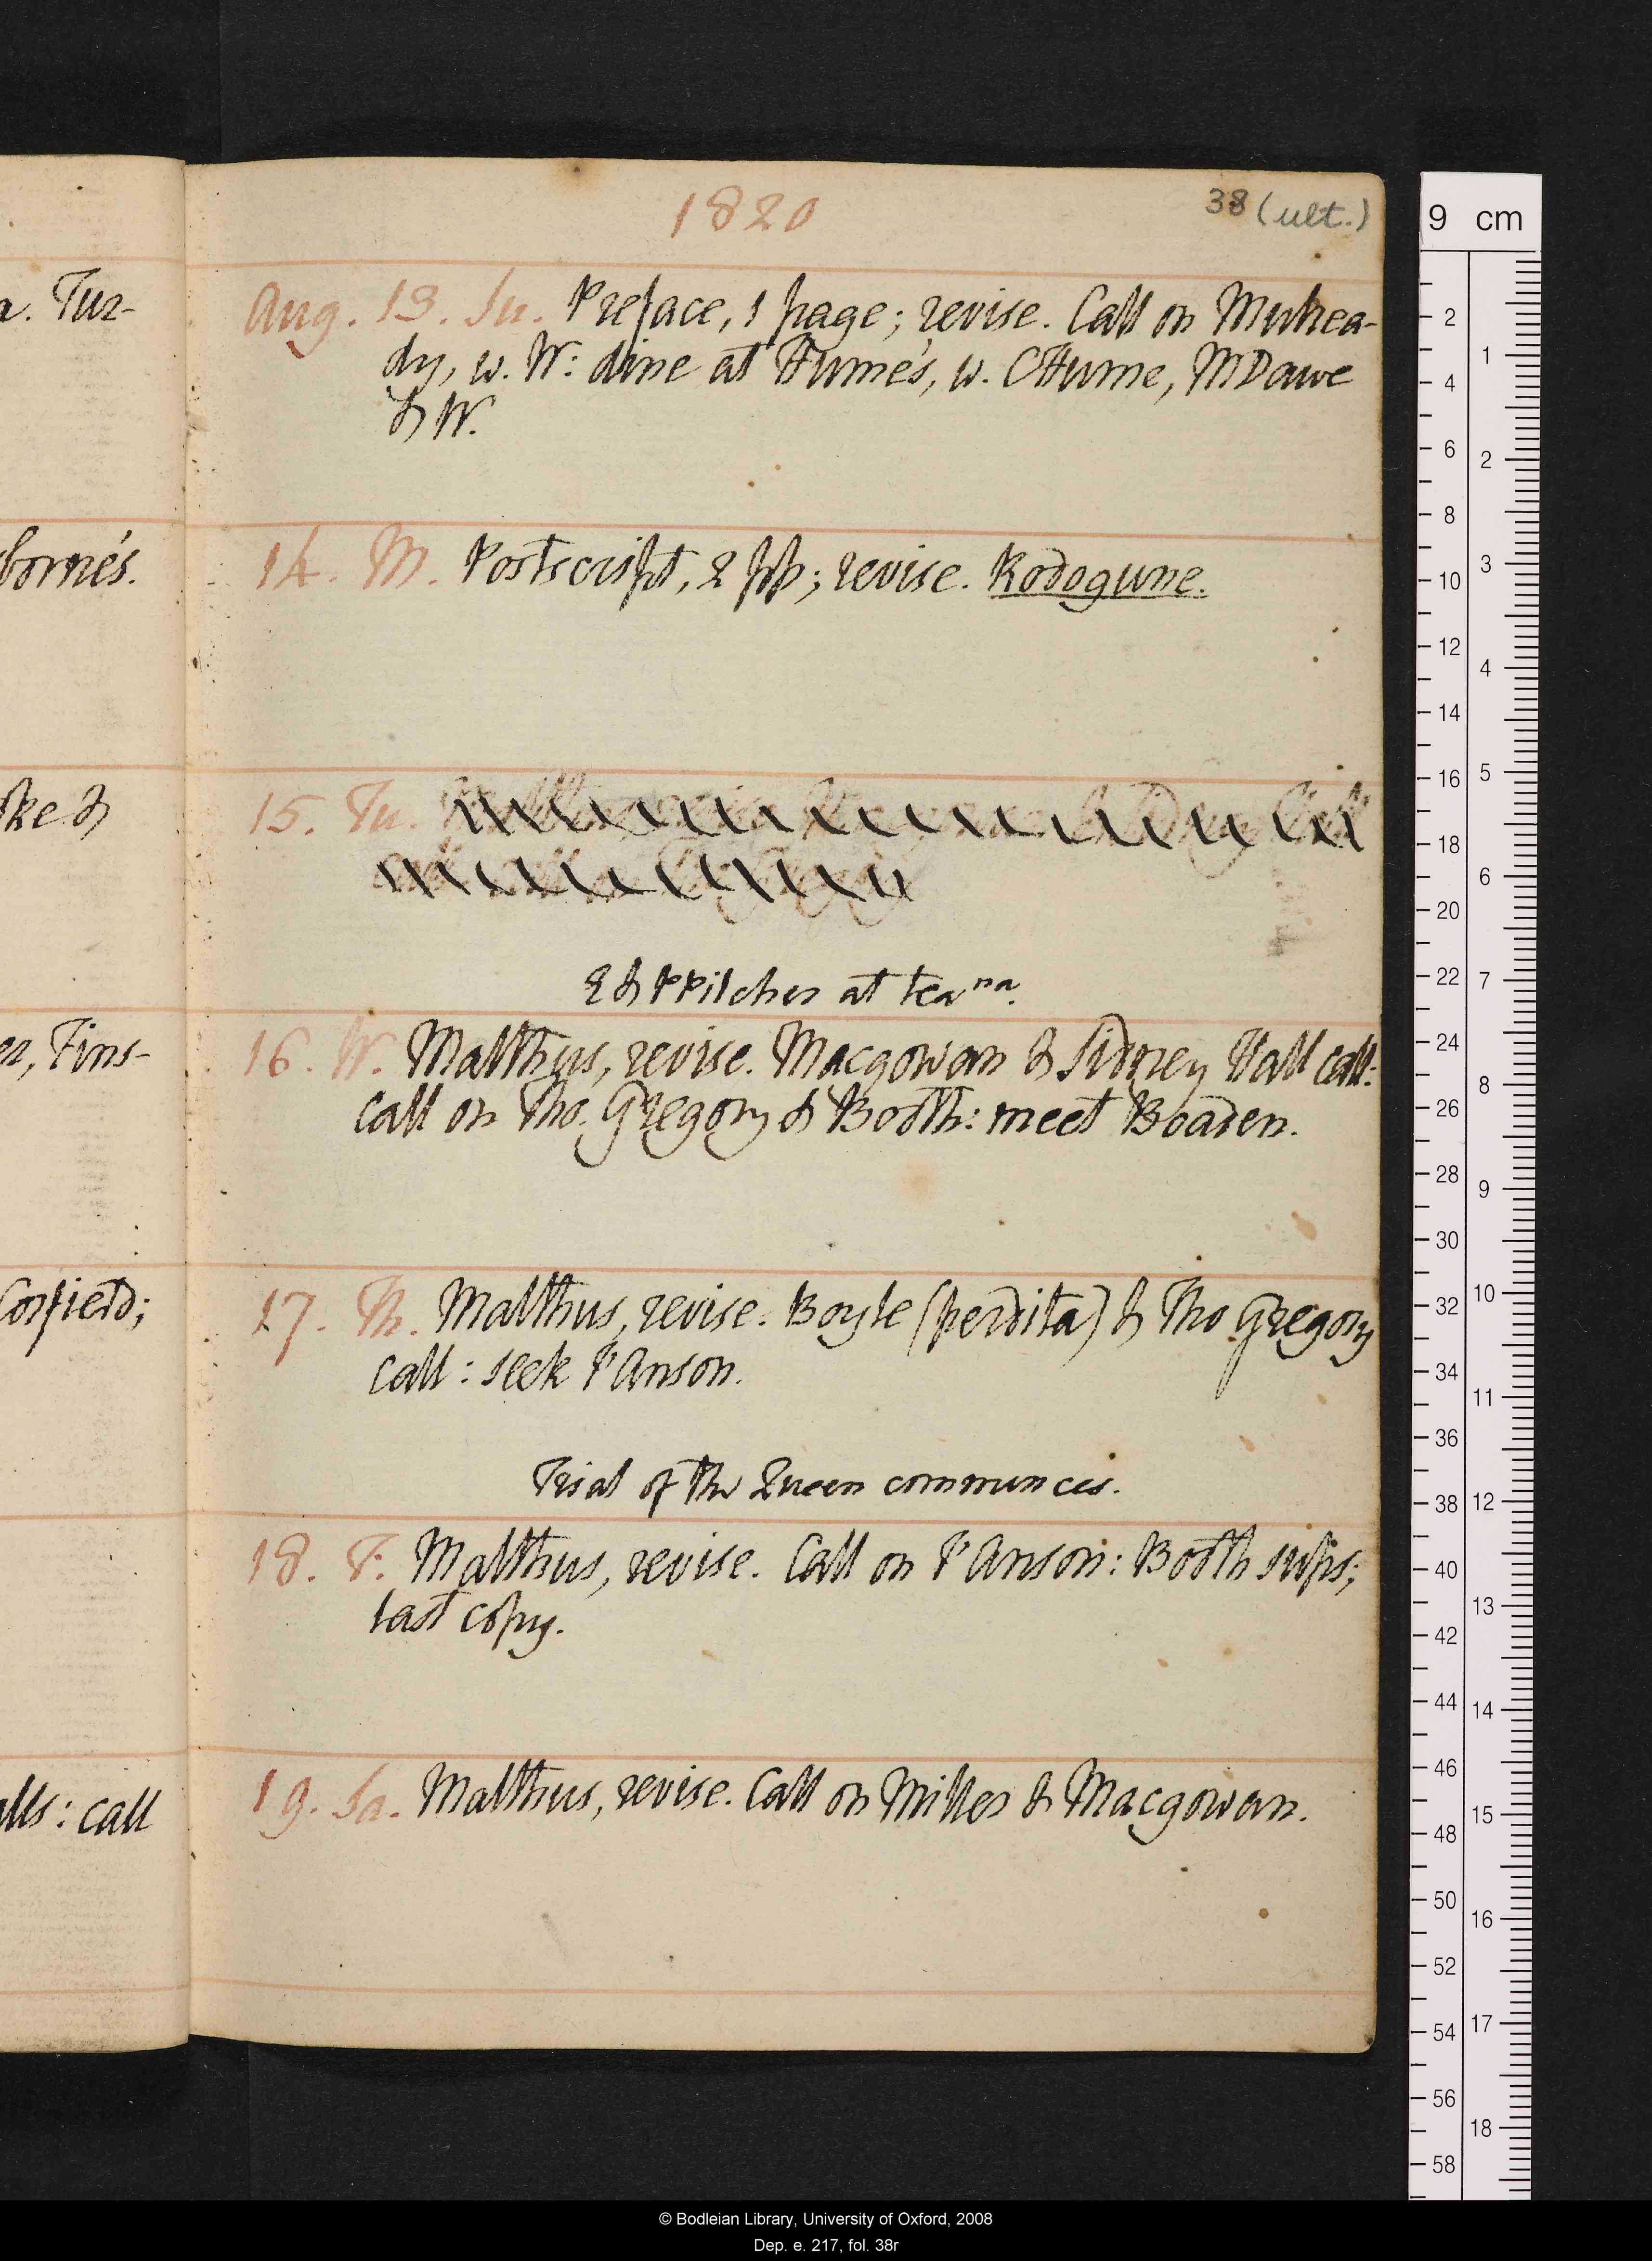 1820
38 (ult.)
a. Tur-
Aug. 13. Su. Preface, 1 page; revise. Call on Mulrea-
dy, w. W: dine at Hume's, w. CHume, MDawe
& W.
borne's.
14. M. Postscript, 2 pp; revise. Rodogune.
ke &
15. Tu.
E & PPilcher at tea na.
er, Fins-
16. W. Malthus, revise. Macgowan & Sidney Hall call:
call on Tho. Gregory & Booth: meet Boaden.
Corfield;
17. Th. Malthus, revise. Boyle (perdita) & Tho Gregory
call: seek I'Anson.
Trial of the Queen commences.
18. F. Malthus, revise. Call on I'Anson: Booth sups;
last copy.
alls: call
19. Sa. Malthus, revise. Call on Miller & Macgowan.
9 cm
2
4
6
8
10
12
14
16
18
20
22
24
26
28
30
32
34
36
38
40
42
44
46
48
50
52
54
56
58
1
2
3
4
5
6
7
8
9
10
11
12
13
14
15
16
17
18
© Bodleian Library, University of Oxford, 2008
Dep. e. 217, fol. 38r